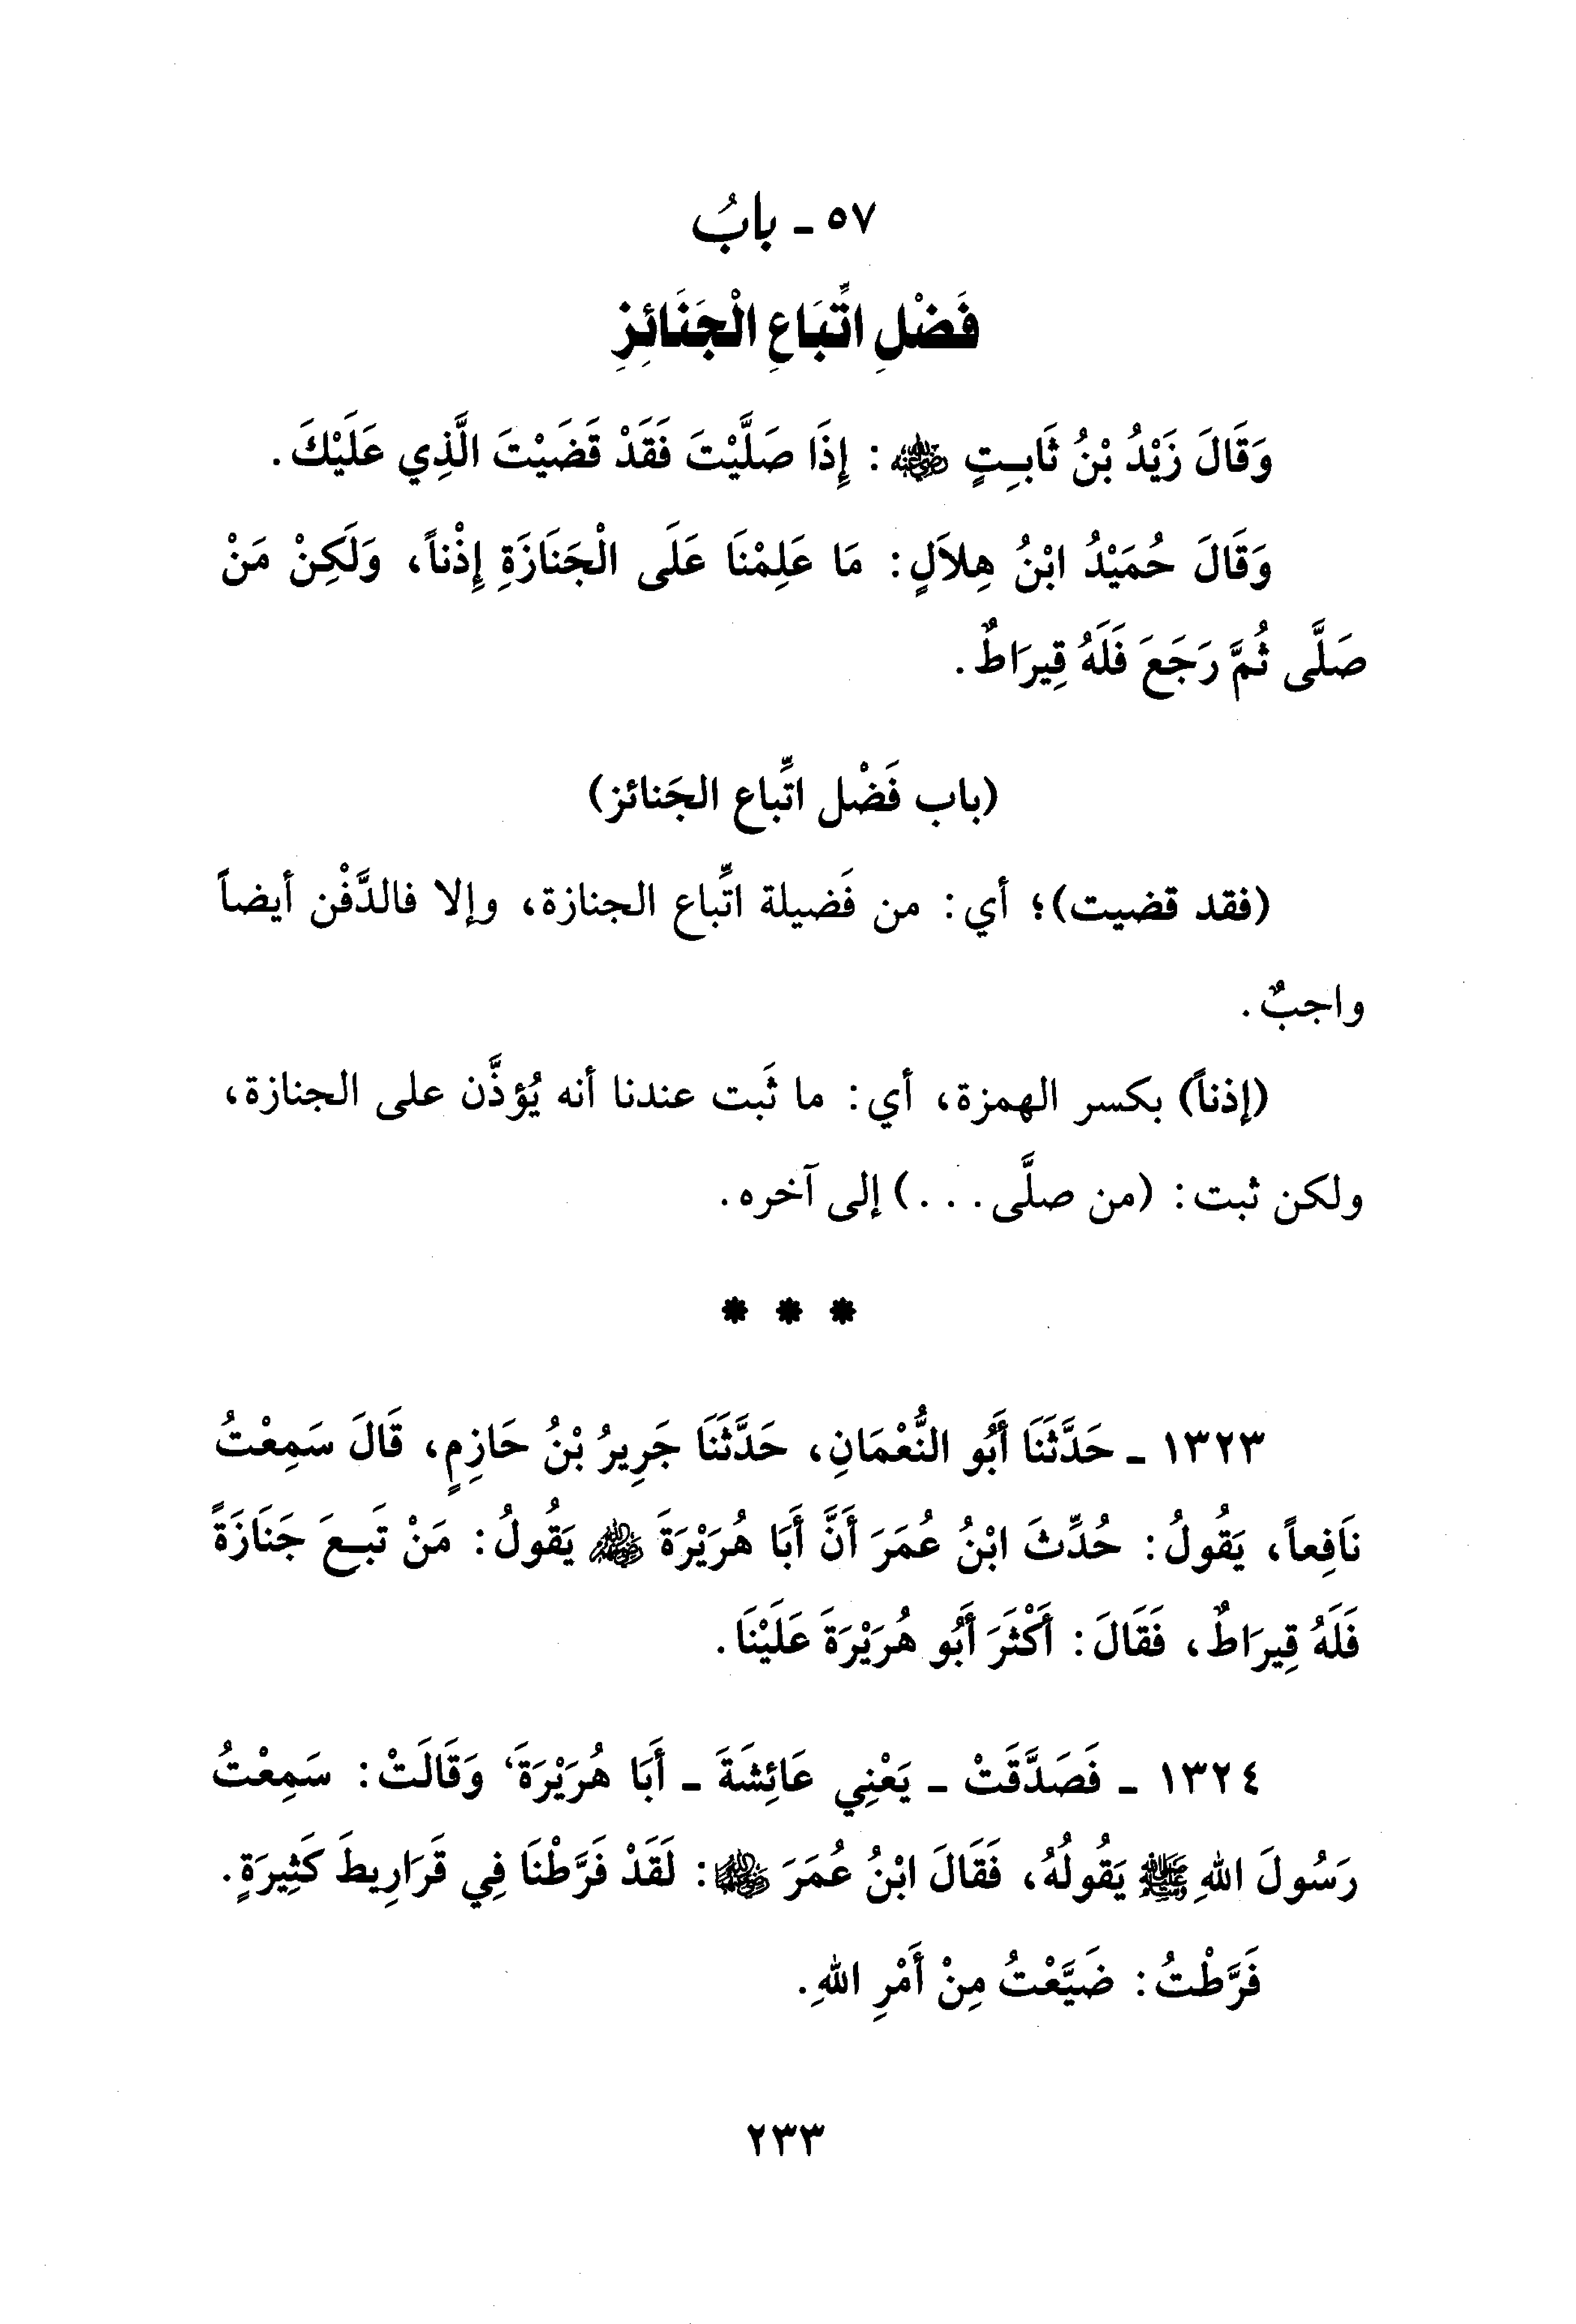 ٥٧ - بابُ
فَضْلِ اتِّبَاعِ الْجَنَائِزِ
وَقَالَ زَيْدُ بْنُ ثَابِتٍ رضي الله عنه: إِذَا صَلَّيْتَ فَقَدْ قَضَيْتَ الَّذِي عَلَيْكَ.
وَقَالَ حُمَيْدُ ابْنُ هِلاَلٍ: مَا عَلِمْنَا عَلَى الْجَنَازَةِ إِذْناً، وَلَكِنْ مَنْ
صَلَّى ثُمَّ رَجَعَ فَلَهُ قِيرَاطٌ.
(باب فَضْل اتِّباع الجَنائز)
(فقد قضيت)؛ أي: من فَضيلة اتِّباع الجنازة، وإلا فالدَّفْن أيضاً
واجبٌ.
(إذناً) بكسر الهمزة، أي: ما ثَبت عندنا أنه يُؤذَّن على الجنازة،
ولكن ثبت: (من صلَّى...) إلى آخره.
* * *
١٣٢٣ - حَدَّثَنَا أَبُو النُّعْمَانِ، حَدَّثَنَا جَرِيرُ بْنُ حَازِمٍ، قَالَ سَمِعْتُ
نَافِعاً، يَقُولُ: حُدِّثَ ابْنُ عُمَرَ أَنَّ أَبَا هُرَيْرَةَ رضي الله عنهم يَقُولُ: مَنْ تَبِعَ جَنَازَةً
فَلَهُ قِيرَاطٌ، فَقَالَ: أَكْثَرَ أَبُو هُرَيْرَةَ عَلَيْنَا.
١٣٢٤ - فَصَدَّقَتْ - يَعْنِي عَائِشَةَ - أَبَا هُرَيْرَةَ، وَقَالَتْ: سَمِعْتُ
رَسُولَ اللهِ ﷺ يَقُولُهُ، فَقَالَ ابْنُ عُمَرَ رضي الله عنهما: لَقَدْ فَرَّطْنَا فِي قَرَارِيطَ كَثِيرَةٍ.
فَرَّطْتُ: ضَيَّعْتُ مِنْ أَمْرِ اللهِ.
٢٣٣